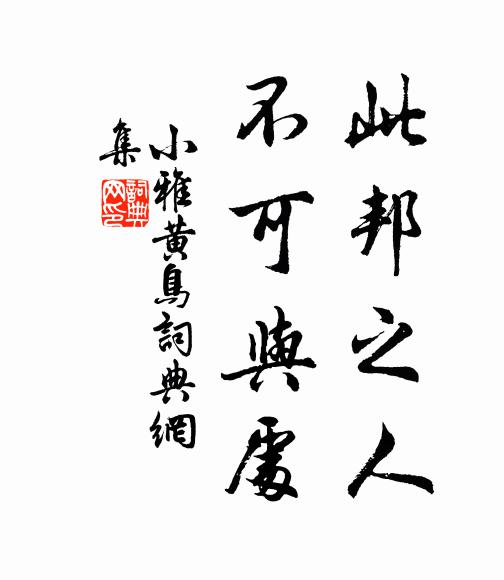 此邦之人
不可與處
小雅黄鳥詞典網
集
詞典網印